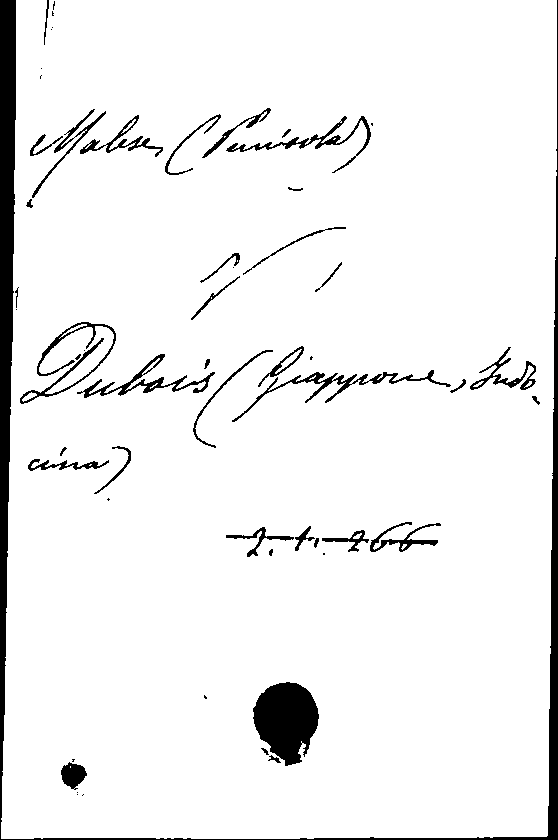 Malese, (Penisola)
V.
Dubois (Giappone, Indo-
cina)
2. 1. 266